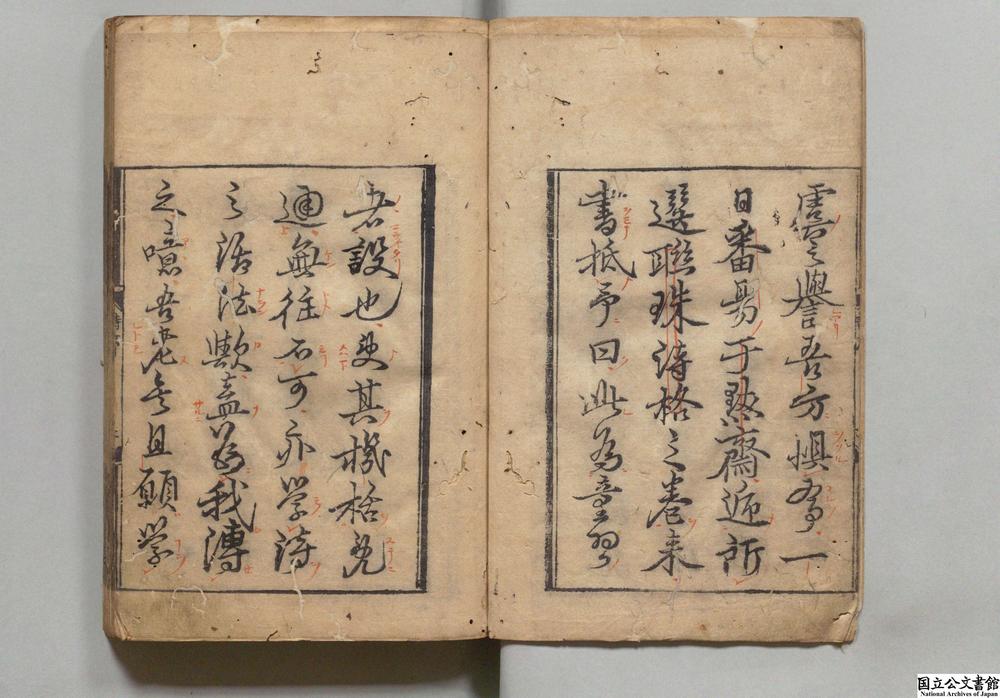 虞之譽吾方懼焉一
日番昜于黙齋逓所
選聯珠詩格之巻来
書抵予曰此為童習
者設也使其機栝既
通無往不可亦学詩
之活法歟盍為我傳
之噫吾老矣且願学
国立公文書館
National Archives of Japan